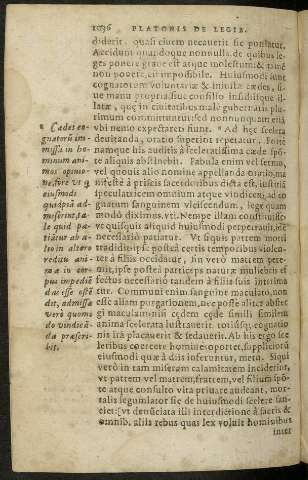 1036 PLATONIS DE LEGIB.
diderit. quasi ciuem necauerit sic puniatur.
Accidunt quandoque nonnulla, de quibus le-
ges ponere graue est atque molestum: & tamē
non ponere, est impossibile. Huiusmodi sunt
cognatorum voluntariæ & iniustæ cædes, si-
ue manu propria siue consilio insidiisque il-
latæ, quæ in ciuitatibus male gubernatis plu-
rimum committuntur: sed nonnunquam etiā
vbi nemo expectaret fiunt. Ad hęc scelera
deuitanda, oratio superior repetatur. Forte
namque his auditis à sceleratissima cæde spō-
te aliquis abstinebit. Fabula enim vel sermo,
vel quouis alio nomine appellanda oratio, ma
nifeste à priscis sacerdotibus dicta est, iustitiā
speculatricem omnium atque vindicem, ad co
gnatum sanguinem vlciscendum, lege quam
modò diximus, vti. Nempe illam constituisse,
vt quisquis aliquid huiusmodi perpetrauit, de
necessario patiatur. Vt siquis patrem morti
tradidit, ipse postea certis temporibus violen-
ter à filiis occidatur, sin verò matrem pere-
mit, ipse postea particeps naturæ muliebris ef
fectus necessario tandem à filiis suis intrima
tur. Communi enim sanguine maculato, non
est aliam purgationem, nec posse aliter abster
gi maculam, nisi cędem cęde simili similem
anima scelerata lustrauerit. totiusque cognatio
nis irā placauerit & sedauerit. Ab his ergo sce
leribus coercere homines oportet, suppliciorū
eiusmodi quæ à diis inferuntur, metu. Siqui
verò in tam miseram calamitatem inciderint,
vt patrem vel matrem, fratrem, vel filium spō-
te atque consulto vita priuare audeant, mor-
talis legumlator sic de huiusmodi scelere san-
ciet: vt denūciata illi interdictione à sacris &
omnib. aliis rebus quas lex voluit hominibus
inter
Cædes co-
gnatorū im-
missa in ho-
minum ani-
mos opinio-
ne, fore vt q
eiusmodi
quidpiā ad-
miserint, ta-
le quid pa-
tiātur ab a-
lio in altero
reditu ani-
mæ in cor-
pus impediē
dæ esse estē
dit, admissæ
verò quomo
do vindicā-
da præscri-
bit.